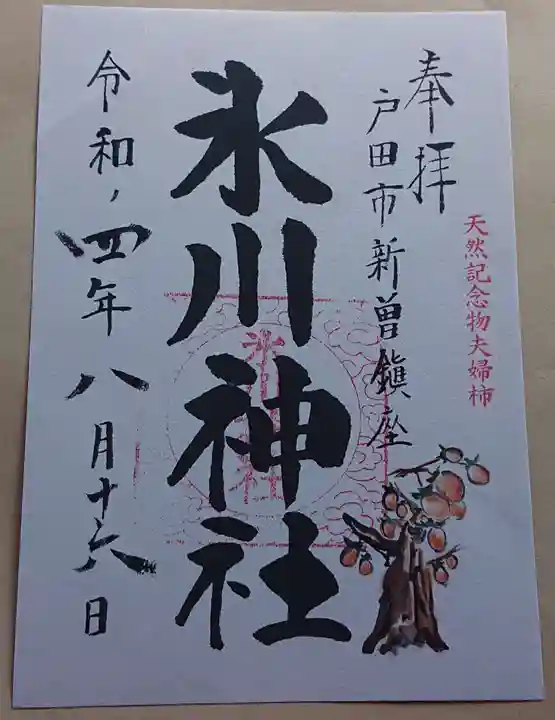 奉拝
戸田市新曽鎮座
天然記念物夫婦柿
氷川神社
令和、四年八月十六日